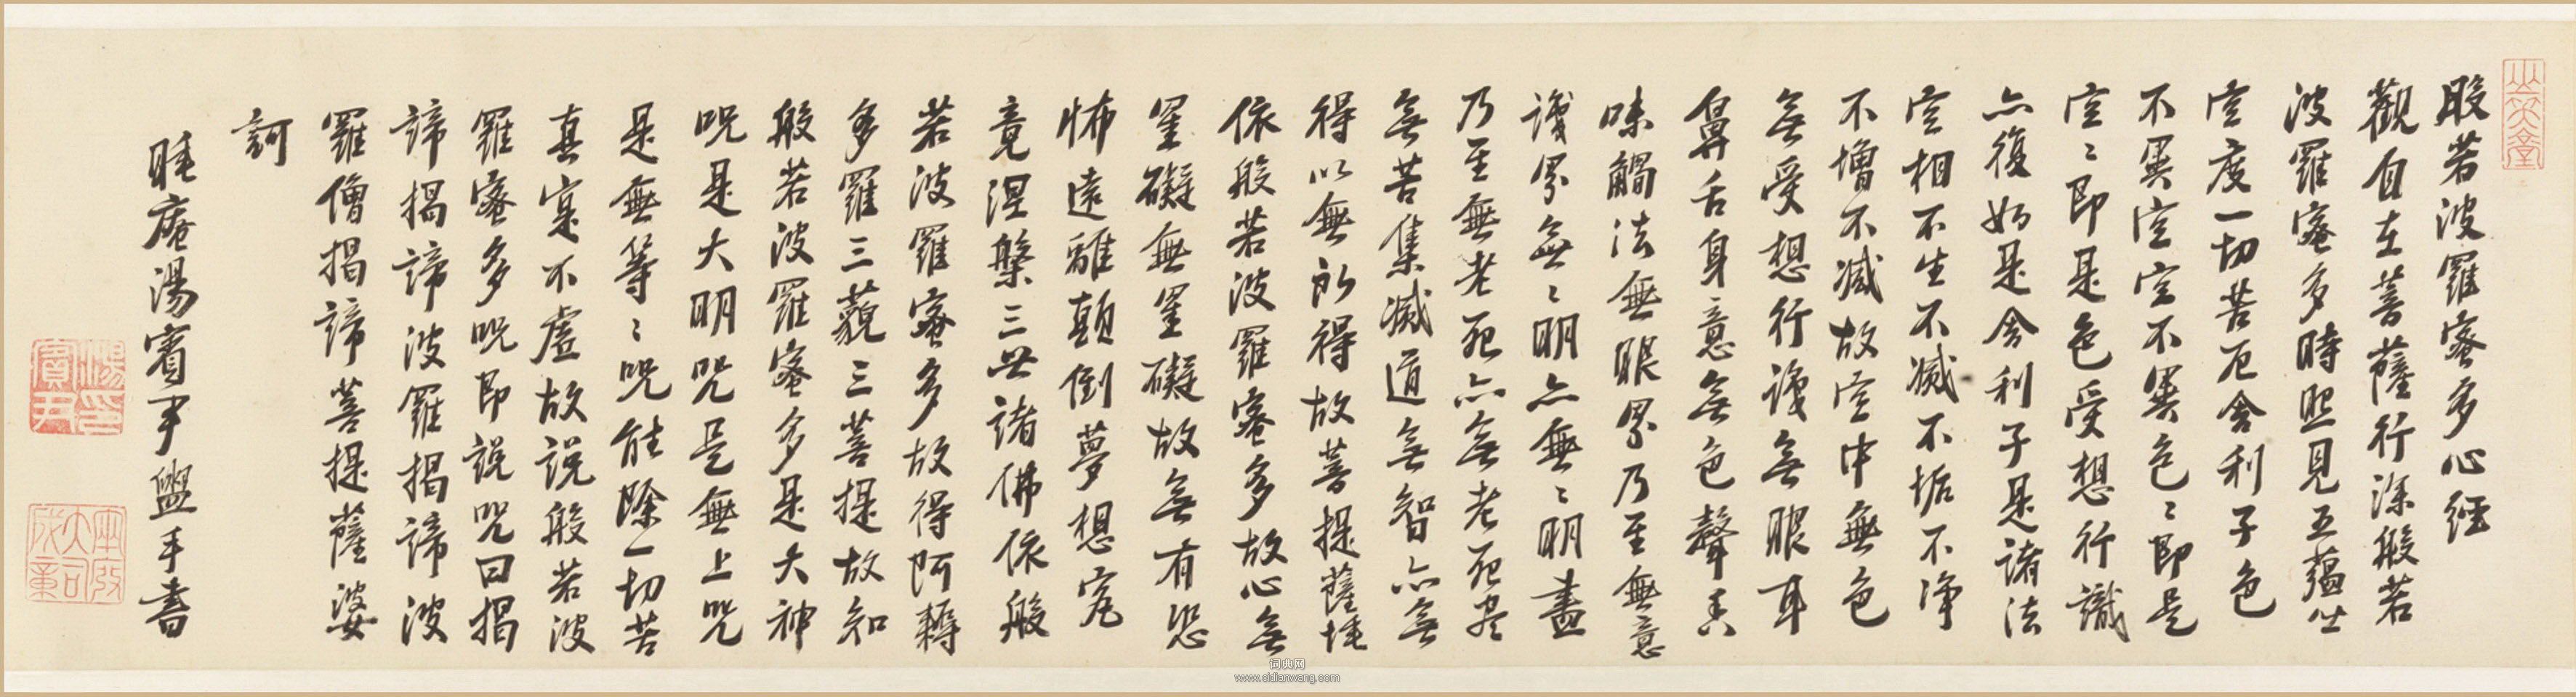 般若波羅蜜多心經
觀自在菩薩行深般若
波羅蜜多時照見五蘊皆
空度一切苦厄舍利子色
不異空空不異色色〻即是
空〻即是色受想行識
亦復如是舍利子是諸法
空相不生不滅不垢不淨
不增不減故空中無色
無受想行識無眼耳
鼻舌身意無色聲香
味觸法無眼界乃至無意
識界無〻明亦無〻明盡
乃至無老死亦無老死盡
無苦集滅道無智亦無
得以無所得故菩提薩埵
依般若波羅蜜多故心無
罣礙無罣礙故無有恐
怖遠離顛倒夢想究
竟涅槃三世諸佛依般
若波羅蜜多故得阿耨
多羅三藐三菩提故知
般若波羅蜜多是大神
咒是大明咒是無上咒
是無等〻咒能除一切苦
真實不虛故說般若波
羅蜜多咒即說咒曰揭
諦揭諦波羅揭諦波
羅僧揭諦菩提薩婆
訶
睡庵湯賓尹盥手書
湯賓尹印
词典网
www.cidianwang.com